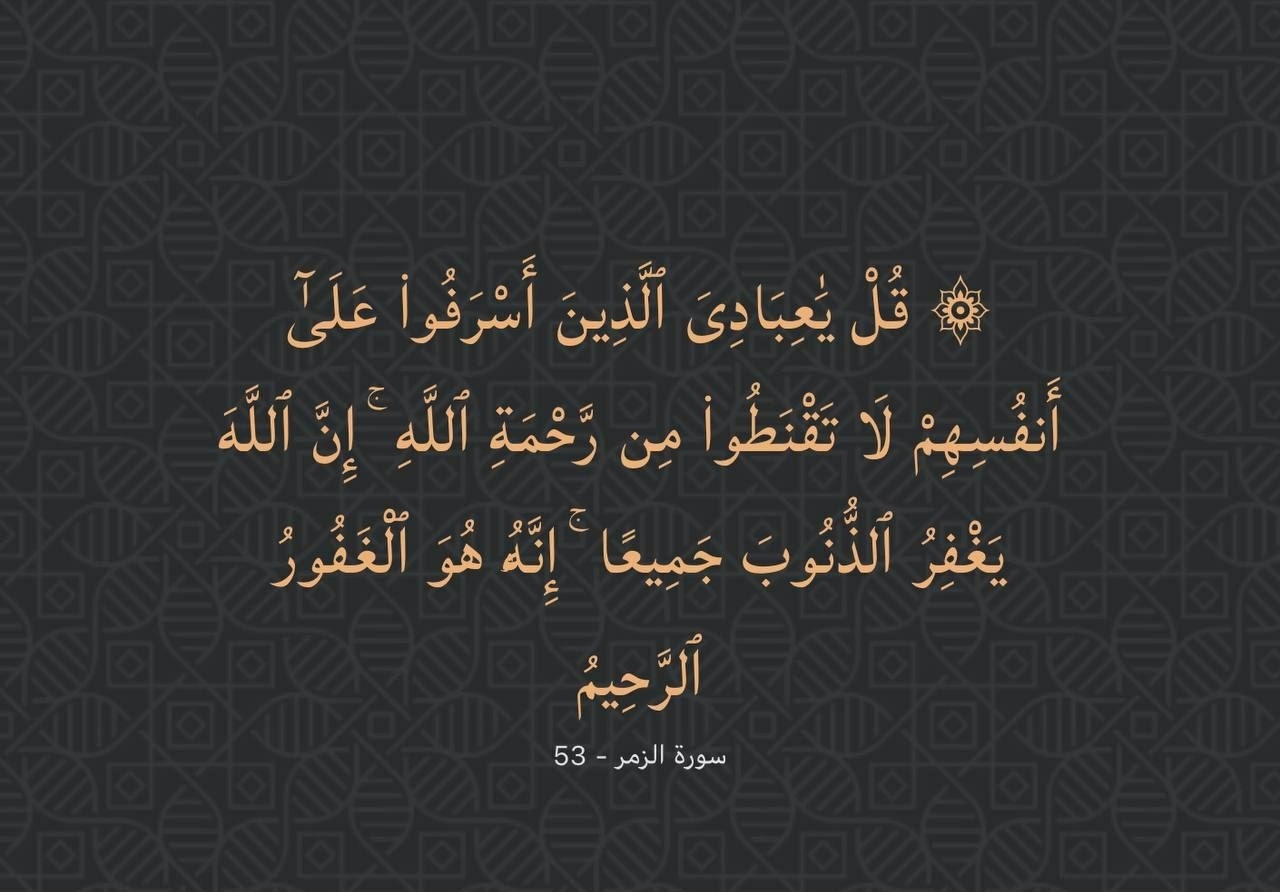 ۞ قُلْ يَـٰعِبَادِىَ ٱلَّذِينَ أَسْرَفُوا۟ عَلَىٰٓ
أَنفُسِهِمْ لَا تَقْنَطُوا۟ مِن رَّحْمَةِ ٱللَّهِ ۚ إِنَّ ٱللَّهَ
يَغْفِرُ ٱلذُّنُوبَ جَمِيعًا ۚ إِنَّهُۥ هُوَ ٱلْغَفُورُ
ٱلرَّحِيمُ
سورة الزمر - 53